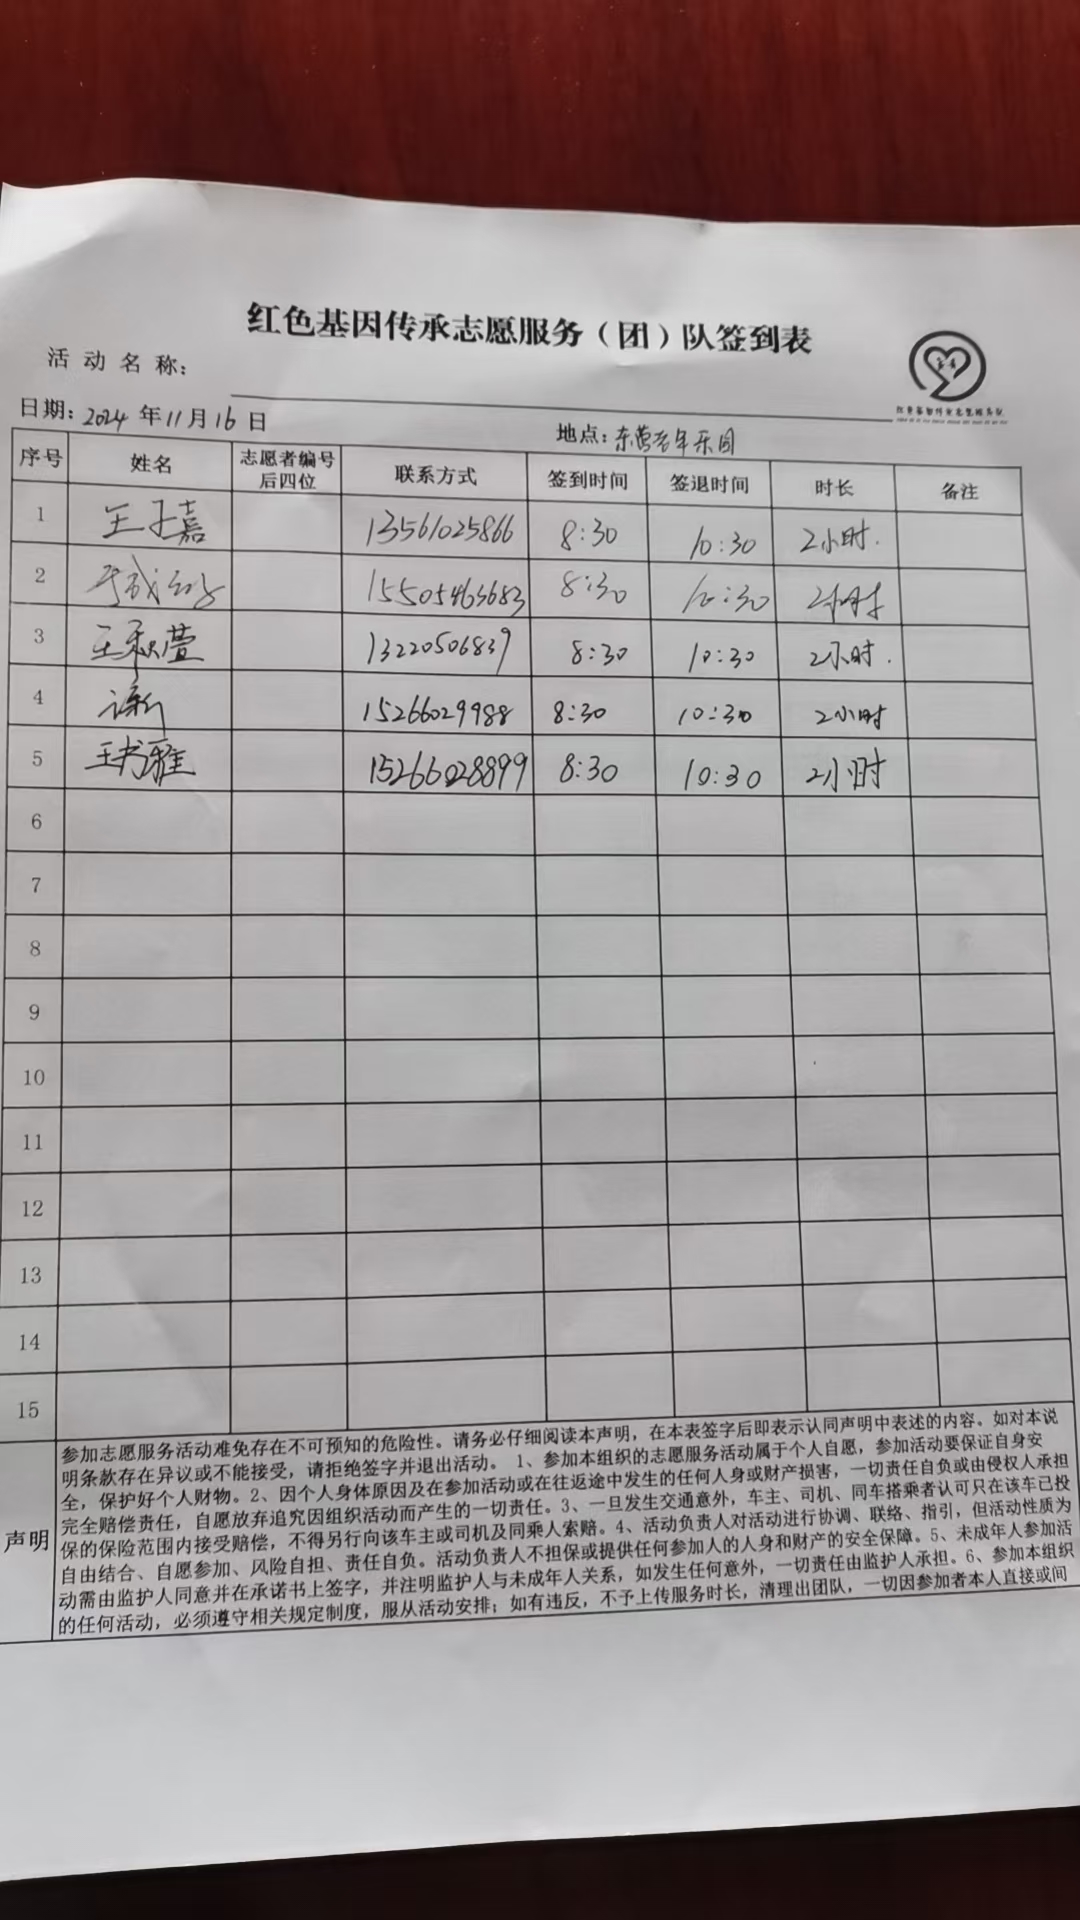 红色基因传承志愿服务（团）队签到表
活动名称：
日期：2024年11月16日
地点：东营老年乐园
序号 姓名 志愿者编号后四位 联系方式 签到时间 签退时间 时长 备注
1 王子嘉 13561025866 8:30 10:30 2小时.
2 15505463683 8:30 10:30 2小时
3 王秋萱 13220506839 8:30 10:30 2小时.
4 15266029988 8:30 10:30 2小时
5 王书雅 15266028899 8:30 10:30 2小时
6
7
8
9
10
11
12
13
14
15
声明
参加志愿服务活动难免存在不可预知的危险性。请务必仔细阅读本声明，在本表签字后即表示认同声明中表述的内容。如对本说
明条款存在异议或不能接受，请拒绝签字并退出活动。 1、参加本组织的志愿服务活动属于个人自愿，参加活动要保证自身安
全，保护好个人财物。2、因个人身体原因及在参加活动或在往返途中发生的任何人身或财产损害，一切责任自负或由侵权人承担
完全赔偿责任，自愿放弃追究因组织活动而产生的一切责任。3、一旦发生交通意外，车主、司机、同车搭乘者认可只在该车已投
保的保险范围内接受赔偿，不得另行向该车主或司机及同乘人索赔。4、活动负责人对活动进行协调、联络、指引，但活动性质为
自由结合、自愿参加、风险自担、责任自负。活动负责人不担保或提供任何参加人的人身和财产的安全保障。5、未成年人参加活
动需由监护人同意并在承诺书上签字，并注明监护人与未成年人关系，如发生任何意外，一切责任由监护人承担。6、参加本组织
的任何活动，必须遵守相关规定制度，服从活动安排；如有违反，不予上传服务时长，清理出团队，一切因参加者本人直接或间